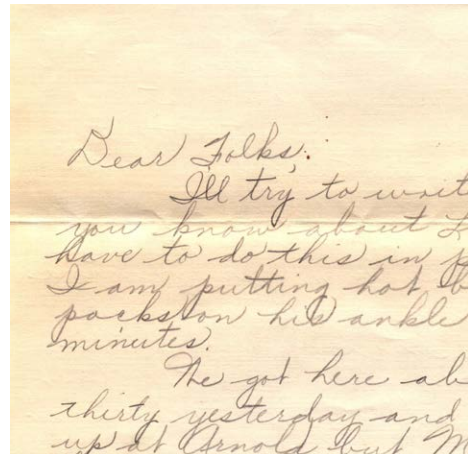 Dear Folks,
I'll try to writ
you know about
have to do this in p
I am putting hot b
packs on his ankle
minutes.
We got here ab
thirty yesterday and
up at Arnold but M